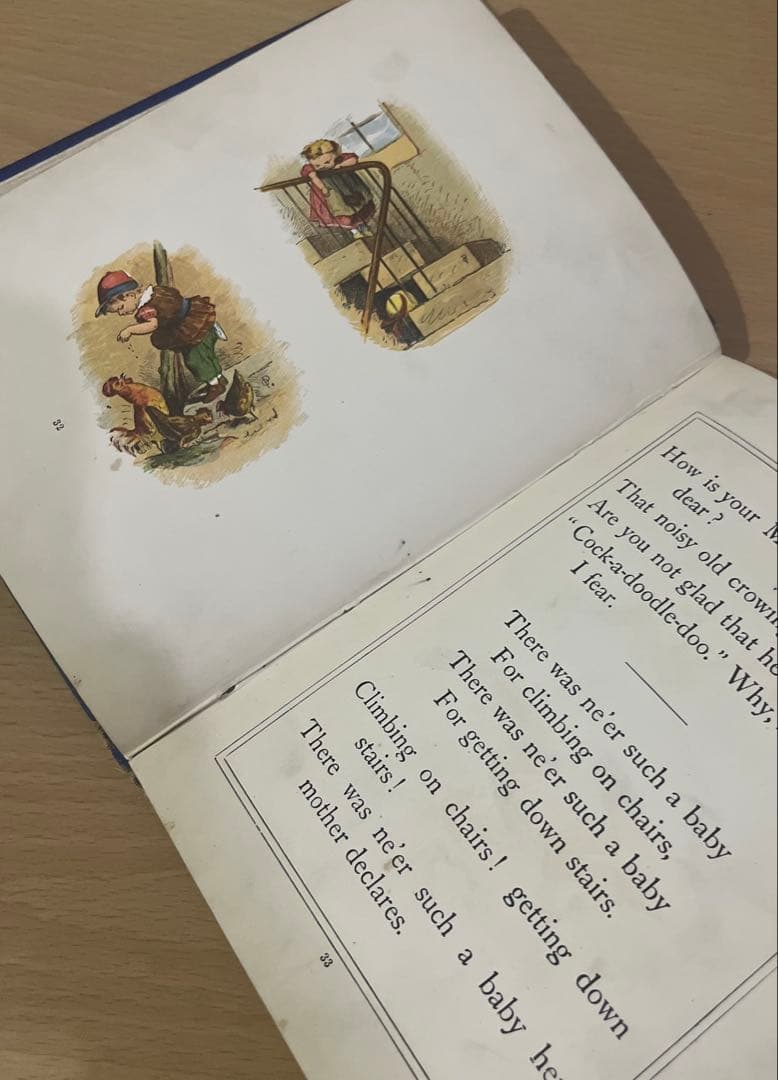 32
How is your
dear?
That noisy old
Are you not glad that
"Cock-a-doodle-doo." Why,
I fear.
There was ne'er such a baby
For climbing on chairs,
There was ne'er such a baby
For getting down stairs.
Climbing on chairs! getting down
stairs!
There was ne'er such a baby
mother declares.
33